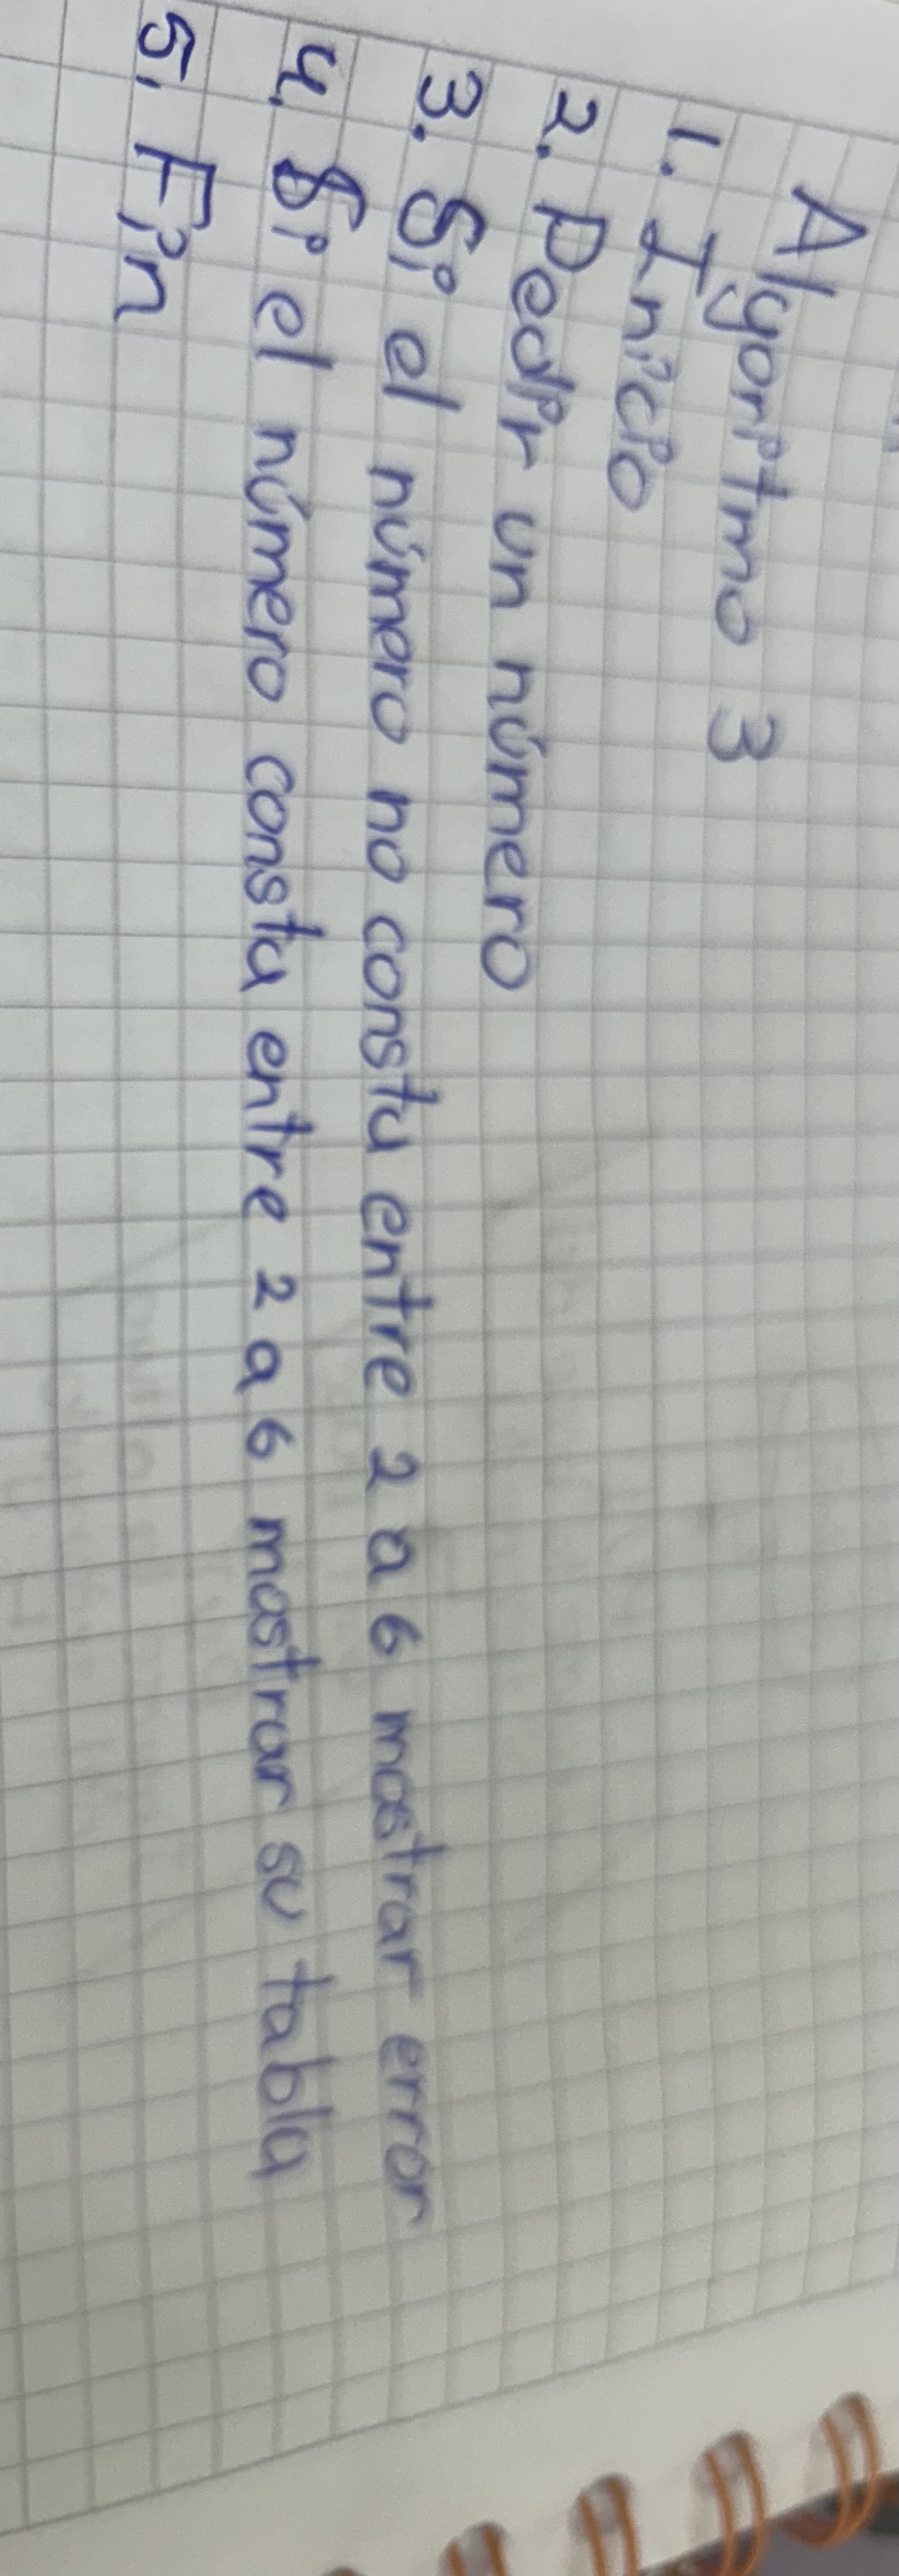 Algoritmo 3
1. Inicio
2. Pedir un número
3. Si el número no consta entre 2 a 6 mostrar error
4. Si el número consta entre 2 a 6 mostrar su tabla
5. Fin